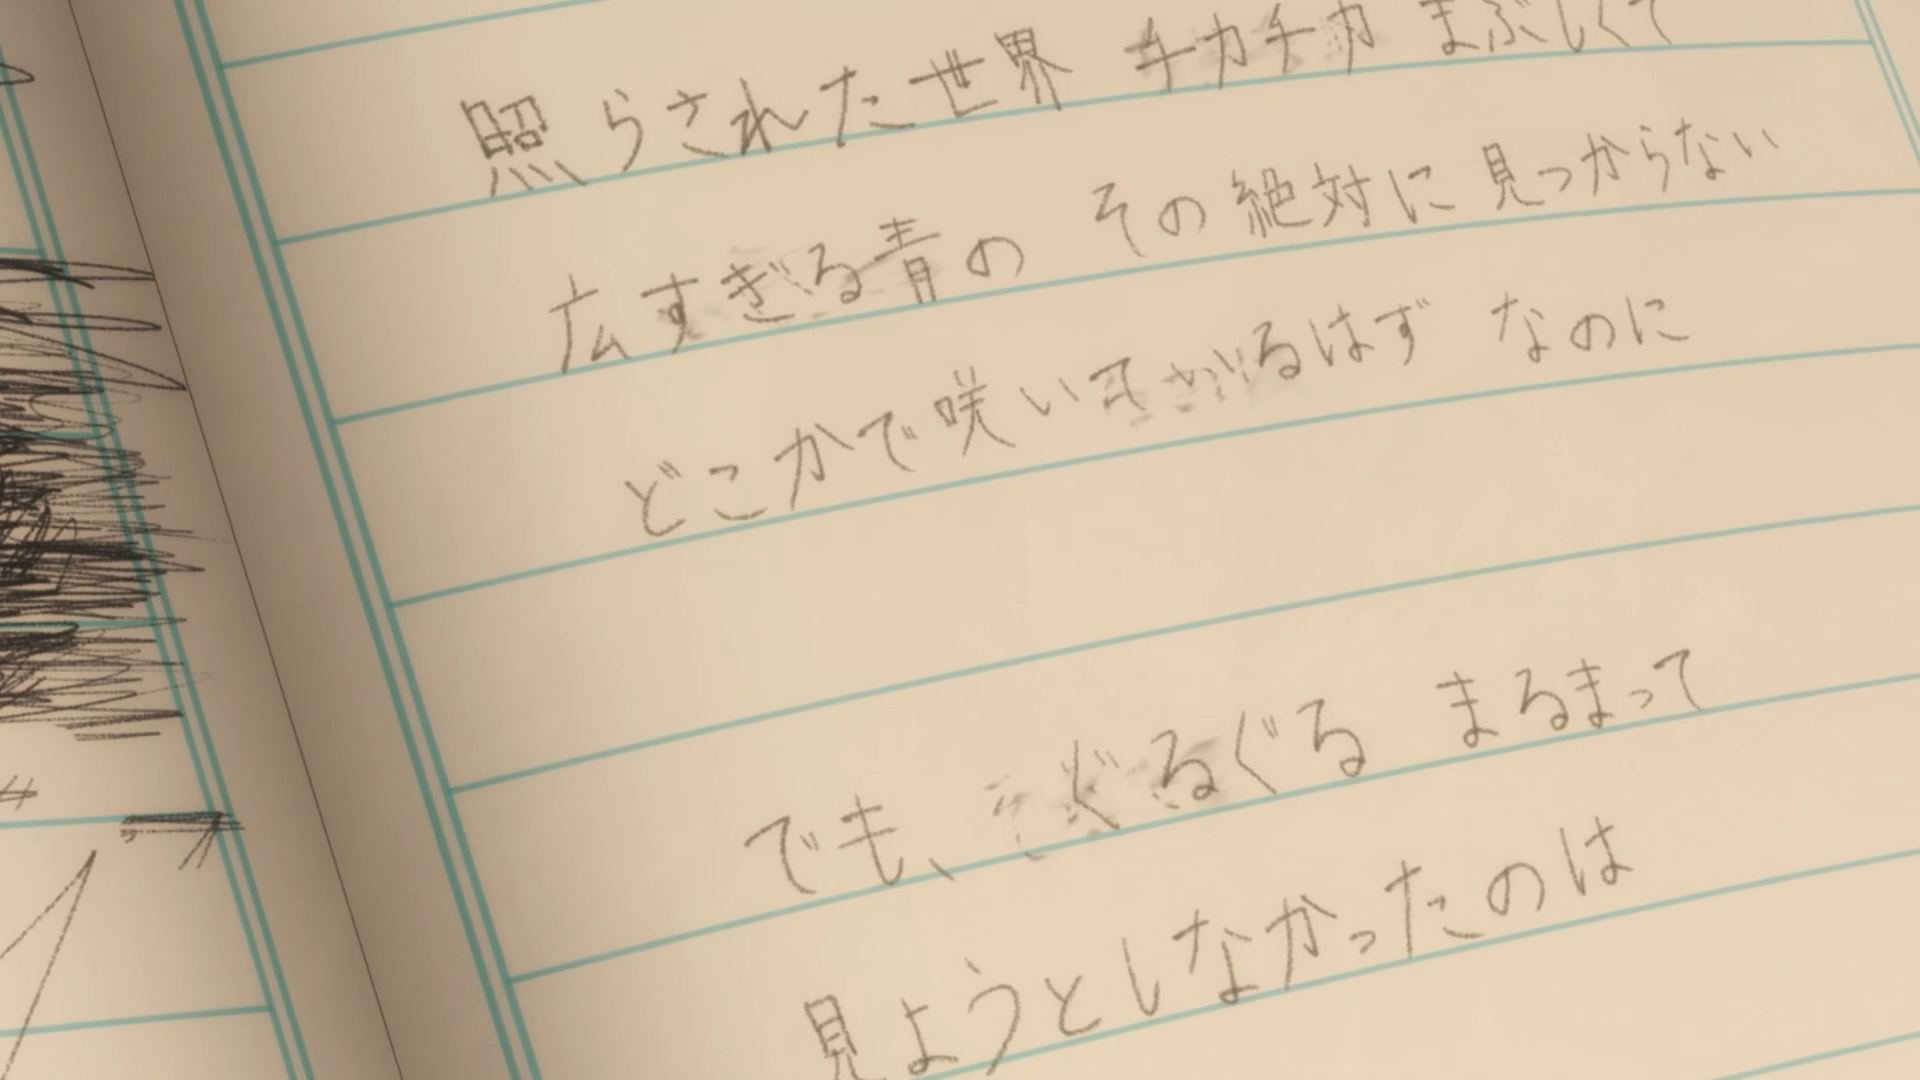 照らされた世界 チカチカ まぶしくて
広すぎる青の その絶対に 見つからない
どこかで咲いてるはず なのに
でも、ぐるぐる まるまって
見ようとしなかったのは